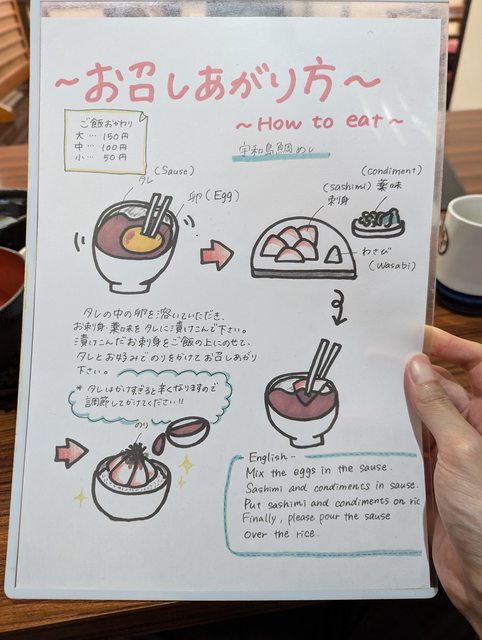 ～お召しあがり方～
～How to eat～
ご飯おかわり
大…150円
中…100円
小…50円
宇和島鯛めし
(Sause)
タレ
卵(Egg)
(condiment)
薬味
(sashimi)
刺身
わさび
(Wasabi)
タレの中の卵を溶いていただき、
お刺身・薬味をタレに漬けこんで下さい。
漬けこんだお刺身をご飯の上にのせて、
タレとお好みでのりをかけてお召しあがり
下さい。
* タレはかけすぎると辛くなりますので
調節してかけてください!!
のり
English --
Mix the eggs in the sause.
Sashimi and condiments in sause.
Put sashimi and condiments on ric
Finally, please pour the sause
over the rice.